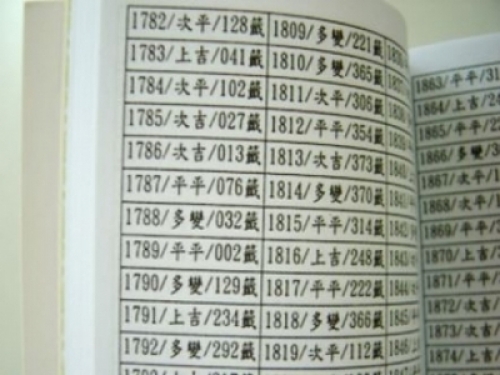 1782/次平/128籤
1783/上吉/041籤
1784/次平/102籤
1785/次吉/027籤
1786/次吉/013籤
1787/平平/076籤
1788/多變/032籤
1789/平平/002籤
1790/多變/129籤
1791/上吉/234籤
1792/多變/292籤
1809/多變/221籤
1810/多變/365籤
1811/次平/306籤
1812/平平/354籤
1813/次吉/373籤
1814/多變/370籤
1815/平平/314籤
1816/上吉/248籤
1817/平平/222籤
1818/多變/366籤
1819/次平/112籤
1863/平平/31
1864/上吉/2
1865/平平/
1866/多變/
1867/次平/
1868/次平/
1869/次平/
1870/上吉/
1871/平平
1872/次吉
1873/次吉
1874/上